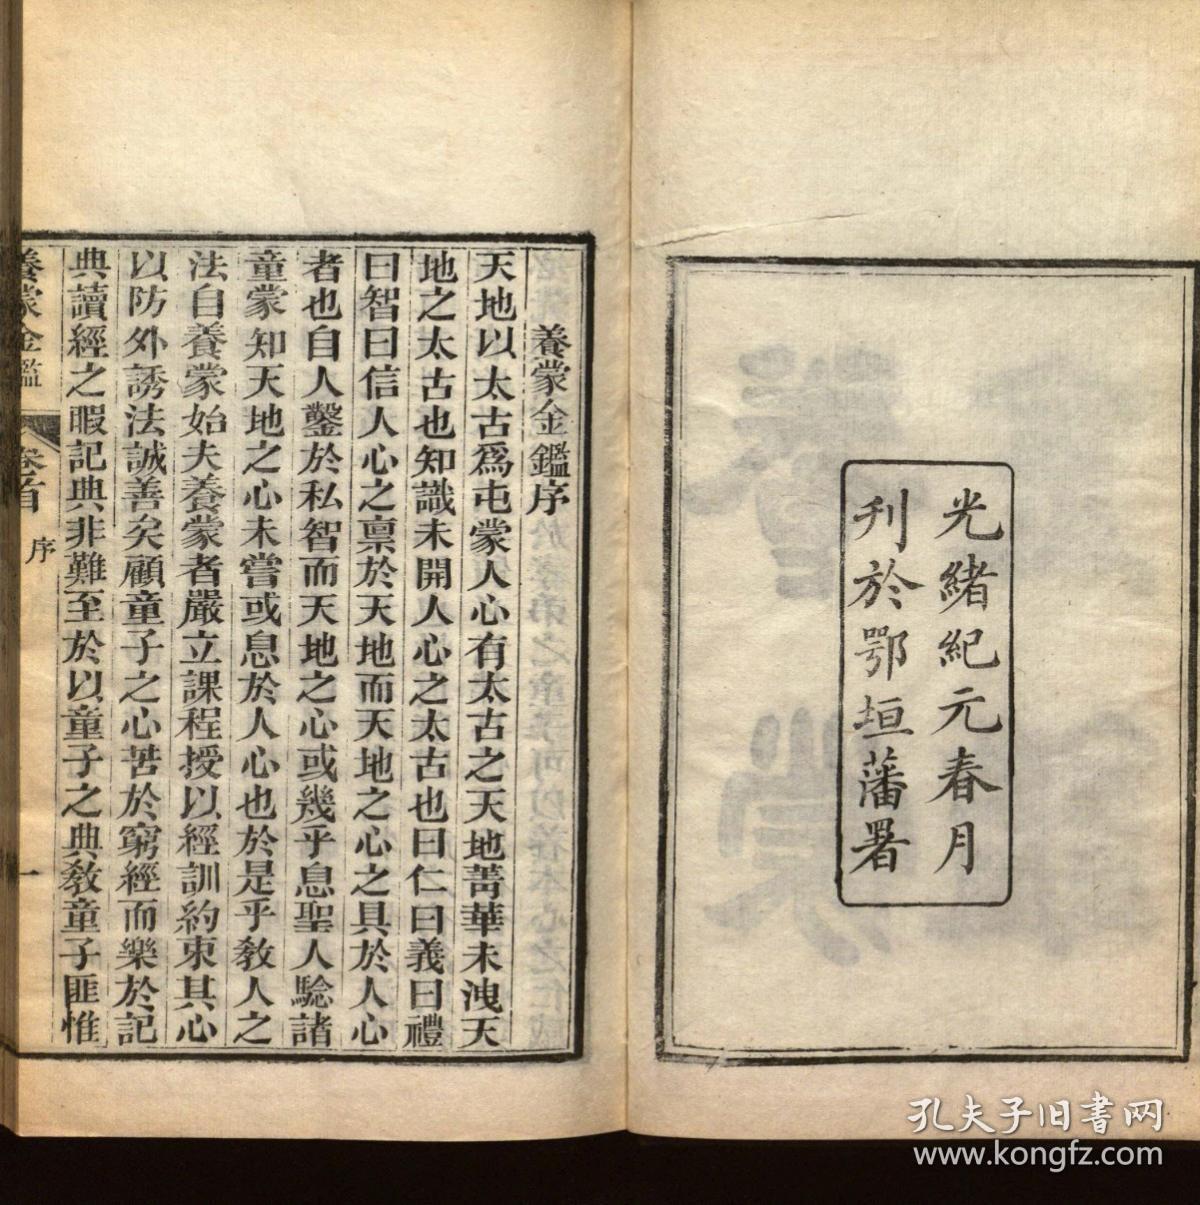 光緒紀元春月
刊於鄂垣藩署
養蒙金鑑序
天地以太古爲屯蒙人心有太古之天地菁華未洩天
地之太古也知識未開人心之太古也曰仁曰義曰禮
曰智曰信人心之稟於天地而天地之心之具於人心
者也自人鑿於私智而天地之心或幾乎息聖人騐諸
童蒙知天地之心未嘗或息於人心也於是乎敎人之
法自養蒙始夫養蒙者嚴立課程授以經訓約束其心
以防外誘法誠善矣顧童子之心苦於窮經而樂於記
典讀經之暇記典非難至於以童子之典敎童子匪惟
養蒙金鑑 卷首 序 一
孔夫子旧书网
www.kongfz.com